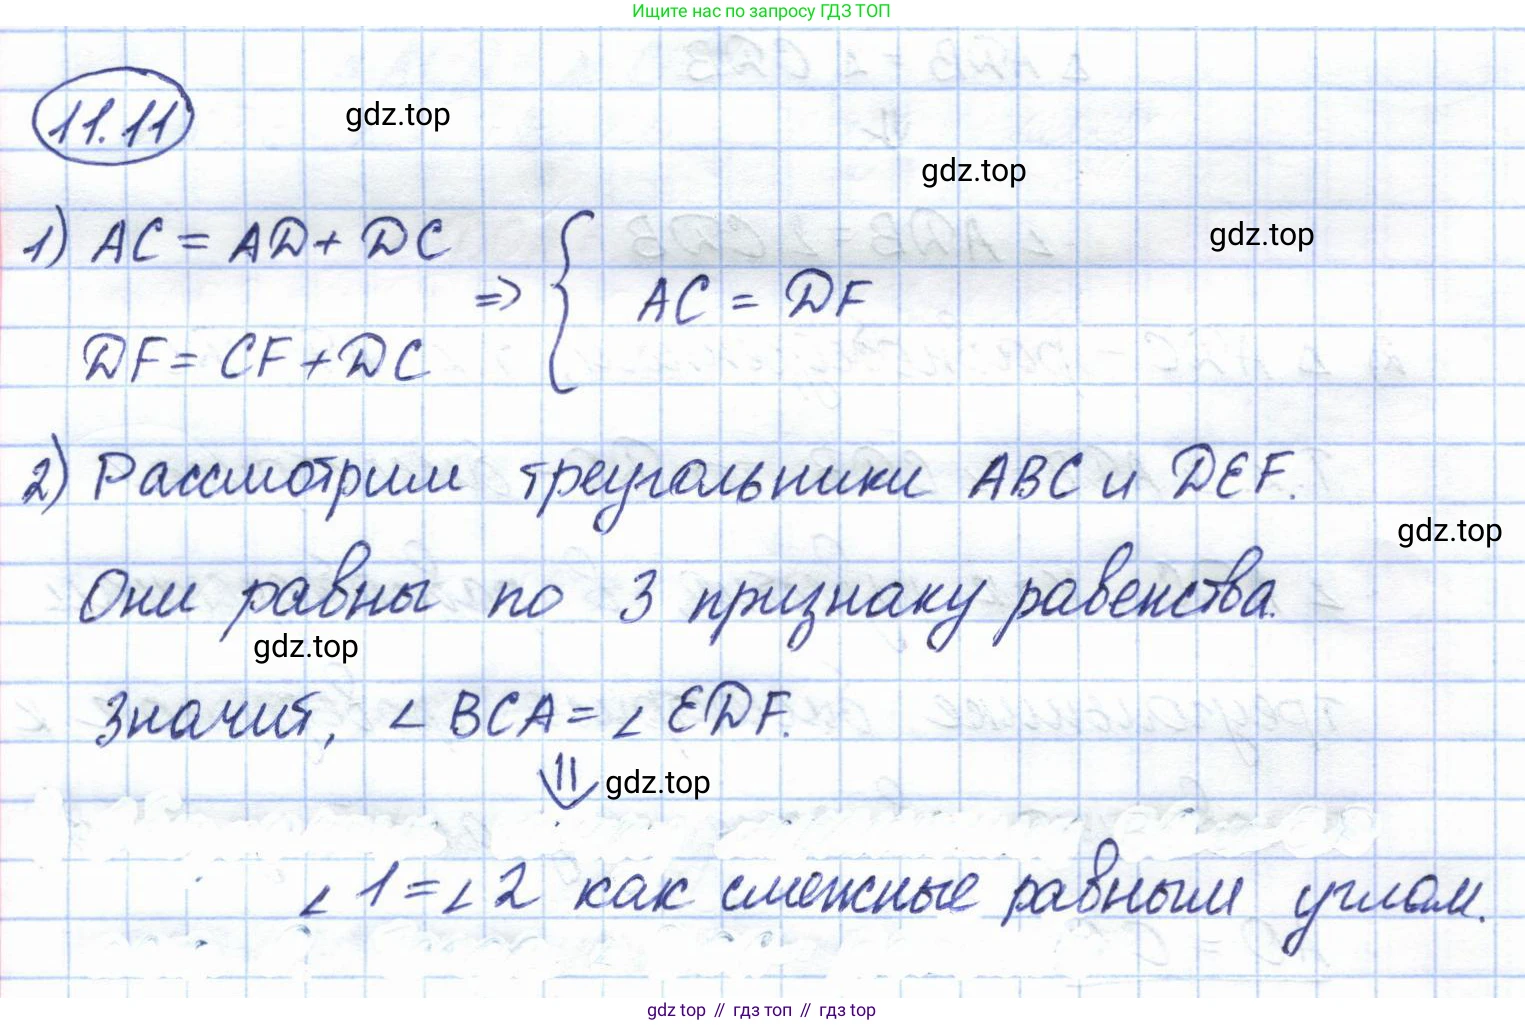 Ищите нас по запросу ГДЗ ТОП
11.11
gdz.top
gdz.top
gdz.top
1) AC = AD + DC
=> { AC = DF
DF = CF + DC
2) Рассмотрим треугольники ABC и DEF.
gdz.top
Они равны по 3 признаку равенства.
gdz.top
Значит, ∠ BCA = ∠ EDF.
⇓ gdz.top
∠ 1 = ∠ 2 как смежные равным углам.
gdz top // гдз топ // гдз top